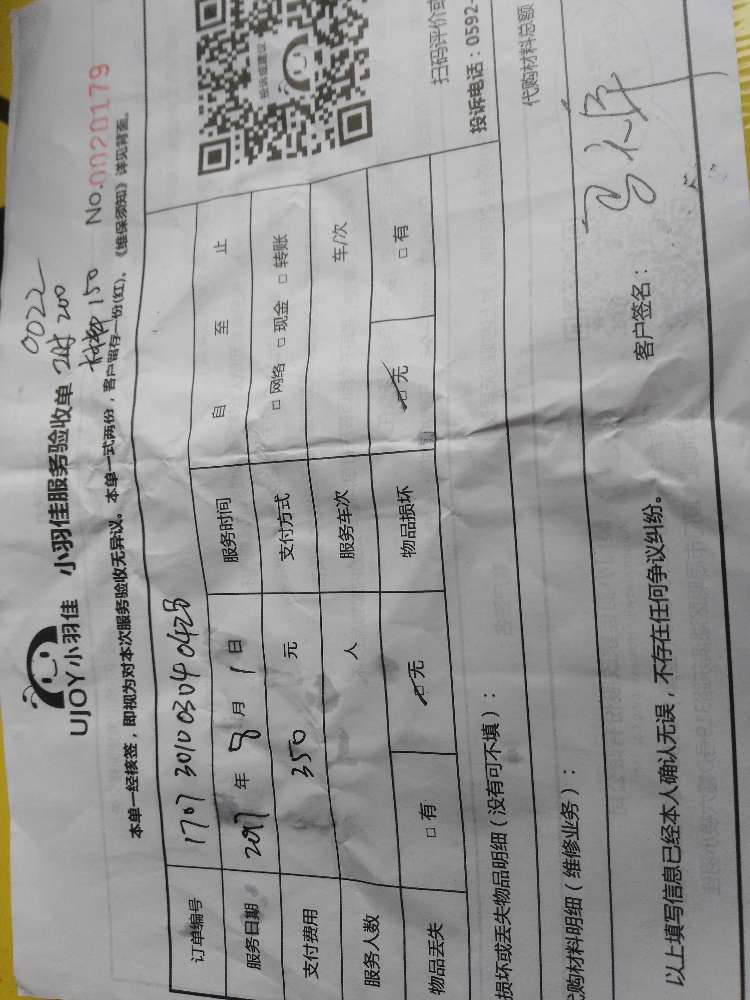 UJOY小羽佳 小羽佳服务验收单
0022
200
150
No.0020179
本单一经核签，即视为对本次服务验收无异议。本单一式两份，客户留存一份(红)、《维保须知》详见背面。
订单编号 1707 3010 0304 0428
服务日期 2017 年 8 月 1 日 服务时间 自 至 止
支付费用 350 元 支付方式 □ 网络 □ 现金 □ 转账
服务人数 人 服务车次 车/次
物品丢失 □ 有 □ 无 物品损坏 □ 无 □ 有
投诉或建议
扫码评价或
投诉电话：0592-
损坏或丢失物品明细（没有可不填）：
代购材料总额
购材料明细（维修业务）：
以上填写信息已经本人确认无误，不存在任何争议纠纷。
客户签名：